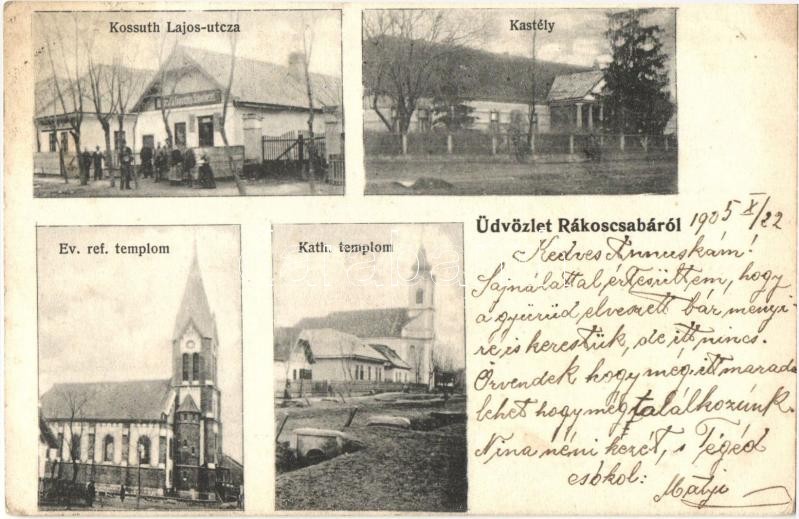 Kossuth Lajos-utcza
Kastély
Ev. ref. templom
Kath. templom
Üdvözlet Rákoscsabáról 1905 X/22
Kedves Annuskám!
Sajnálattal értesültem, hogy
a gyürüd elveszett bár menyi
re is kerestük, de itt nincs.
Örvendek hogy még itt marad s
lehet hogy még találkozunk.
Nina néni kezét, s Tégéd
csókol: